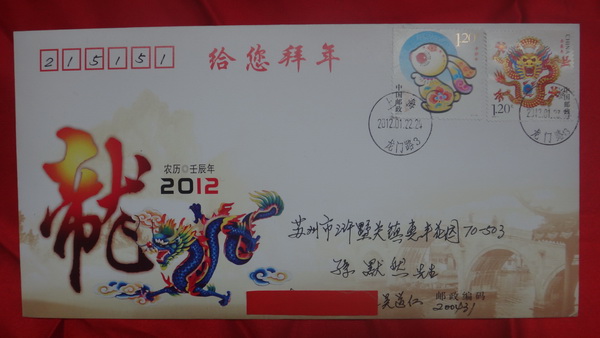 215151
给您拜年
1.20元
中国邮政
1.20元
中国邮政
2012.01.22.24
龙门路3
2012.01.22.24
龙门路3
龍
农历◎壬辰年
2012
苏州市浒墅关镇惠丰花园70-503
孙默然 先生
吴道仁
邮政编码
200431